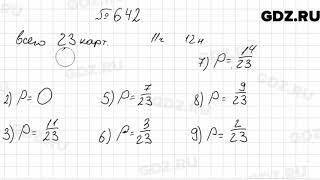 GDZ.RU
№ 642
всего 23 карт. 11ч 12н
7) P = 14/23
2) P = 0 5) P = 7/23 8) P = 9/23
3) P = 11/23 6) P = 3/23 9) P = 2/23